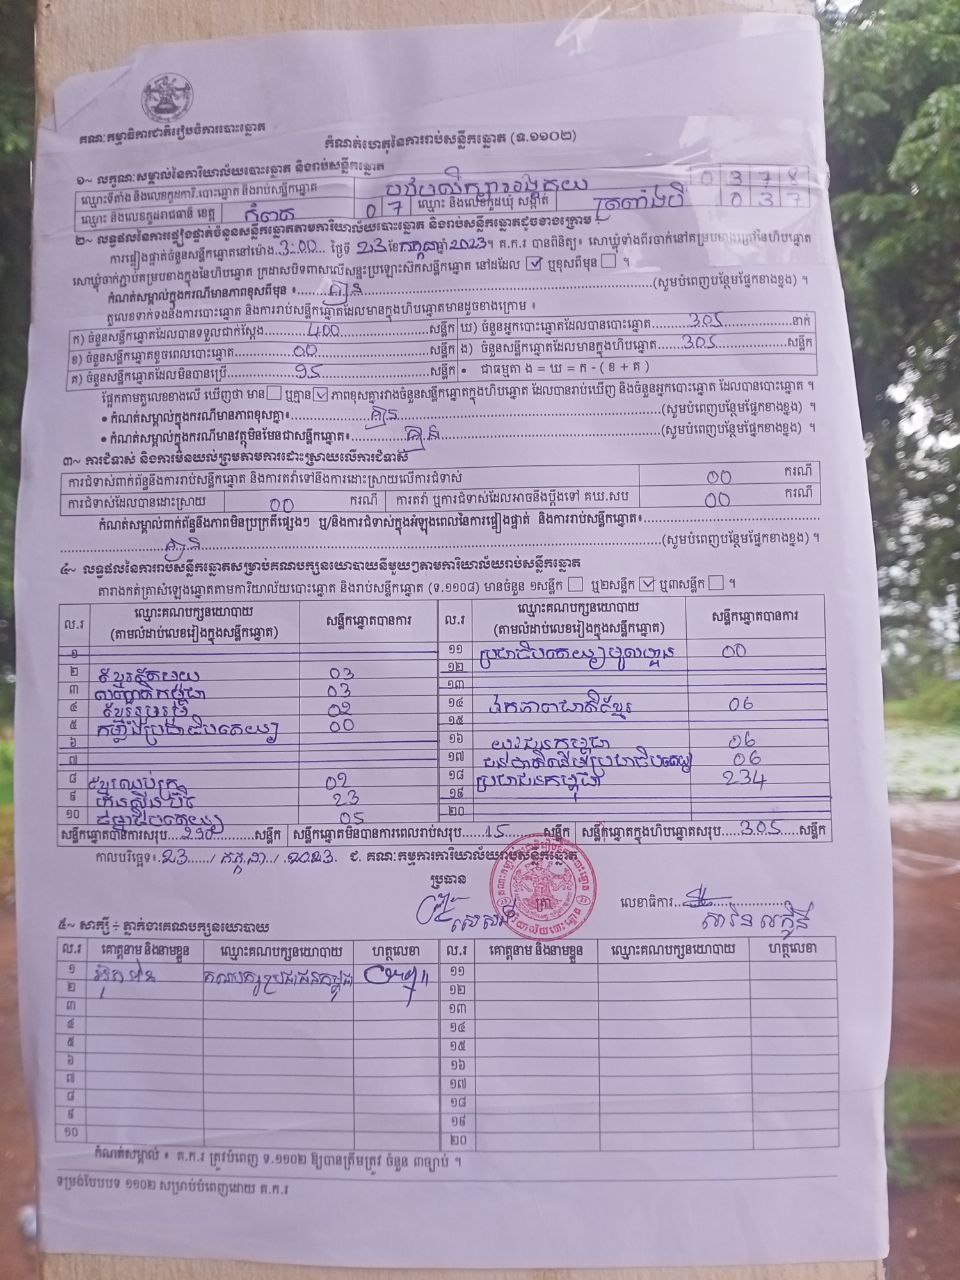 គណៈកម្មាធិការជាតិរៀបចំការបោះឆ្នោត
កំណត់ហេតុនៃការរាប់សន្លឹកឆ្នោត (ទ.១១០២)
១~ លក្ខណៈសម្គាល់នៃការិយាល័យបោះឆ្នោត និងរាប់សន្លឹកឆ្នោត
ឈ្មោះទីតាំង និងលេខកូដការិ.បោះឆ្នោត និងរាប់សន្លឹកឆ្នោត 0 3 7 8
ឈ្មោះ និងលេខកូដរាជធានី ខេត្ត កំពត 0 7 ឈ្មោះ និងលេខកូដឃុំ សង្កាត់ 0 3 7
២~ លទ្ធផលនៃការផ្ទៀងផ្ទាត់ចំនួនសន្លឹកឆ្នោតតាមការិយាល័យបោះឆ្នោត និងរាប់សន្លឹកឆ្នោតដូចខាងក្រោម
ការផ្ទៀងផ្ទាត់ចំនួនសន្លឹកឆ្នោតនៅម៉ោង 3:00 ថ្ងៃទី 23 ខែ កក្កដា ឆ្នាំ 2023។ គ.ក.រ បានពិនិត្យ៖ សោឃ្លុំទាំងពីរចាក់នៅគម្របខាងក្រៅនៃហិបឆ្នោត
សោឃ្លុំចាក់ភ្ជាប់គម្របខាងក្នុងនៃហិបឆ្នោត ក្រដាសបិទពាសលើសន្ទះប្រឡោះស៊កសន្លឹកឆ្នោត នៅដដែល ☑ ឬខុសពីមុន ☐ ។
កំណត់សម្គាល់ក្នុងករណីមានភាពខុសពីមុន ៖ គ្មាន (សូមបំពេញបន្ថែមផ្នែកខាងខ្នង) ។
តួលេខទាក់ទងនឹងការបោះឆ្នោត និងការរាប់សន្លឹកឆ្នោតដែលមានក្នុងហិបឆ្នោតមានដូចខាងក្រោម ៖
ក) ចំនួនសន្លឹកឆ្នោតដែលបានទទួលជាក់ស្តែង 400 សន្លឹក ឃ) ចំនួនអ្នកបោះឆ្នោតដែលបានបោះឆ្នោត 305 នាក់
ខ) ចំនួនសន្លឹកឆ្នោតខូចពេលបោះឆ្នោត 00 សន្លឹក ង) ចំនួនសន្លឹកឆ្នោតដែលមានក្នុងហិបឆ្នោត 305 សន្លឹក
គ) ចំនួនសន្លឹកឆ្នោតដែលមិនបានប្រើ 95 សន្លឹក • ជាធម្មតា ង = ឃ = ក - ( ខ + គ )
ផ្អែកតាមតួលេខខាងលើ ឃើញថា មាន ☐ ឬគ្មាន ☑ ភាពខុសគ្នារវាងចំនួនសន្លឹកឆ្នោតក្នុងហិបឆ្នោត ដែលបានរាប់ឃើញ និងចំនួនអ្នកបោះឆ្នោត ដែលបានបោះឆ្នោត ។
• កំណត់សម្គាល់ក្នុងករណីមានភាពខុសគ្នា៖ គ្មាន (សូមបំពេញបន្ថែមផ្នែកខាងខ្នង) ។
• កំណត់សម្គាល់ក្នុងករណីមានវត្ថុមិនមែនជាសន្លឹកឆ្នោត៖ គ្មាន (សូមបំពេញបន្ថែមផ្នែកខាងខ្នង) ។
៣~ ការជំទាស់ និងការមិនយល់ព្រមតាមការដោះស្រាយលើការជំទាស់
ការជំទាស់ពាក់ព័ន្ធនឹងការរាប់សន្លឹកឆ្នោត និងការតវ៉ាទៅនឹងការដោះស្រាយលើការជំទាស់ 00 ករណី
ការជំទាស់ដែលបានដោះស្រាយ 00 ករណី ការតវ៉ា ឬការជំទាស់ដែលអាចនឹងប្តឹងទៅ គឃ.សប 00 ករណី
កំណត់សម្គាល់ពាក់ព័ន្ធនឹងភាពមិនប្រក្រតីផ្សេងៗ ឬ/និងការជំទាស់ក្នុងអំឡុងពេលនៃការផ្ទៀងផ្ទាត់ និងការរាប់សន្លឹកឆ្នោត៖
គ្មាន (សូមបំពេញបន្ថែមផ្នែកខាងខ្នង) ។
៤~ លទ្ធផលនៃការរាប់សន្លឹកឆ្នោតសម្រាប់គណបក្សនយោបាយនីមួយៗតាមការិយាល័យរាប់សន្លឹកឆ្នោត
តារាងកត់ត្រាសំឡេងឆ្នោតតាមការិយាល័យបោះឆ្នោត និងរាប់សន្លឹកឆ្នោត (ទ.១១០៨) មានចំនួន ១សន្លឹក ☐ ឬ២សន្លឹក ☑ ឬ៣សន្លឹក ☐ ។
ល.រ ឈ្មោះគណបក្សនយោបាយ (តាមលំដាប់លេខរៀងក្នុងសន្លឹកឆ្នោត) សន្លឹកឆ្នោតបានការ ល.រ ឈ្មោះគណបក្សនយោបាយ (តាមលំដាប់លេខរៀងក្នុងសន្លឹកឆ្នោត) សន្លឹកឆ្នោតបានការ
១ ១១ ប្រជាធិបតេយ្យមូលដ្ឋាន 00
២ 03 ១២
៣ 03 ១៣
៤ ខ្មែររួបរួម 02 ១៤ ឯកភាពជាតិខ្មែរ 06
៥ កម្លាំងប្រជាធិបតេយ្យ 00 ១៥
៦ ១៦ យុវជនកម្ពុជា 06
៧ ១៧ 06
៨ ខ្មែរឈប់ក្រ 02 ១៨ ប្រជាជនកម្ពុជា 234
៩ ហ៊្វុនស៊ិនប៉ិច 23 ១៩
១០ ធម្មាធិបតេយ្យ 05 ២០
សន្លឹកឆ្នោតបានការសរុប 290 សន្លឹក សន្លឹកឆ្នោតមិនបានការពេលរាប់សរុប 15 សន្លឹក សន្លឹកឆ្នោតក្នុងហិបឆ្នោតសរុប 305 សន្លឹក
កាលបរិច្ឆេទ៖ 23 / កក្កដា / 2023 ជ. គណៈកម្មការការិយាល័យរាប់សន្លឹកឆ្នោត
ប្រធាន
លេខាធិការ
៥~ សាក្សី ÷ ភ្នាក់ងារគណបក្សនយោបាយ
ល.រ គោត្តនាម និងនាមខ្លួន ឈ្មោះគណបក្សនយោបាយ ហត្ថលេខា ល.រ គោត្តនាម និងនាមខ្លួន ឈ្មោះគណបក្សនយោបាយ ហត្ថលេខា
១ គណបក្សប្រជាជនកម្ពុជា ១១
២ ១២
៣ ១៣
៤ ១៤
៥ ១៥
៦ ១៦
៧ ១៧
៨ ១៨
៩ ១៩
១០ ២០
កំណត់សម្គាល់ ៖ គ.ក.រ ត្រូវបំពេញ ទ.១១០២ ឱ្យបានត្រឹមត្រូវ ចំនួន ៣ច្បាប់ ។
ទម្រង់បែបបទ ១១០២ សម្រាប់បំពេញដោយ គ.ក.រ